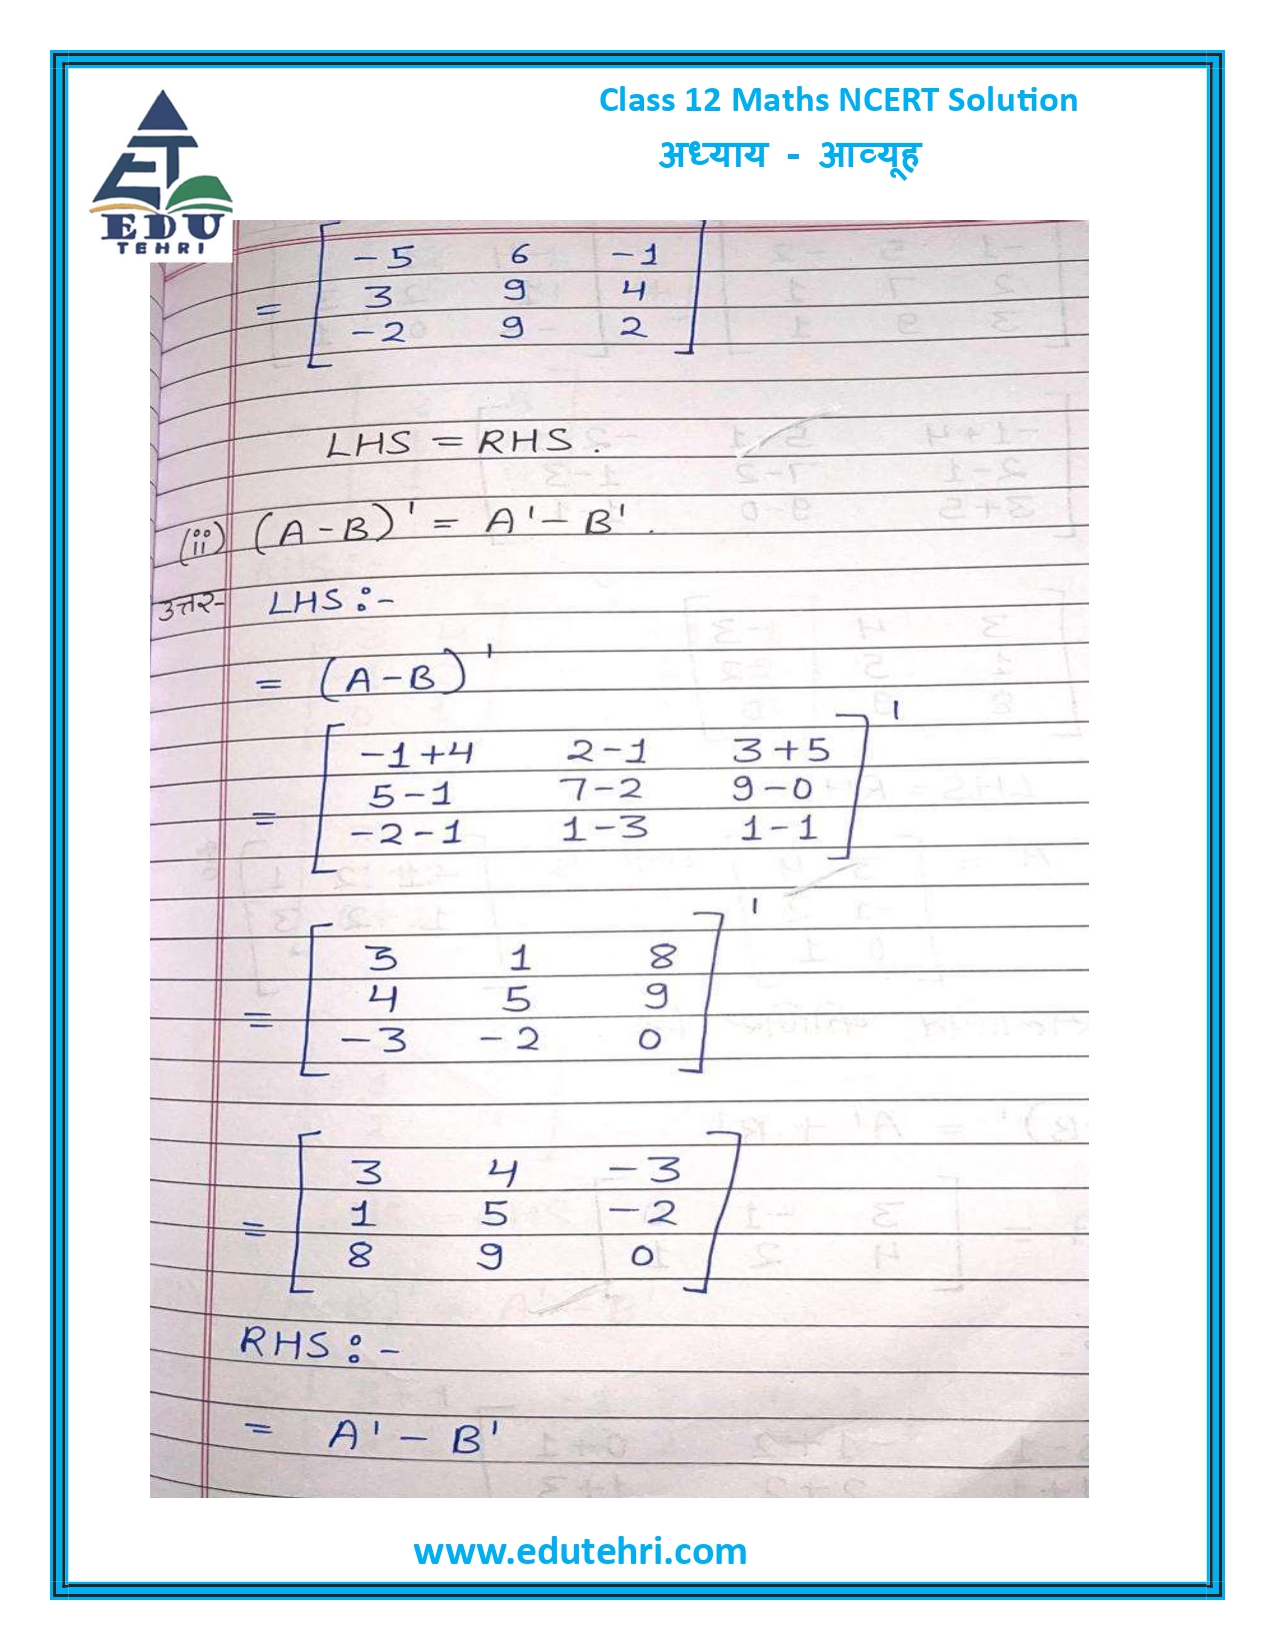 Class 12 Maths NCERT Solution
अध्याय - आव्यूह
EDU
TEHRI
-5 6 -1
= 3 9 4
-2 9 2
LHS = RHS.
(ii) (A-B)' = A' - B'.
उत्तर- LHS :-
= (A-B)'
-1+4 2-1 3+5
= 5-1 7-2 9-0
-2-1 1-3 1-1
'
3 1 8
= 4 5 9
-3 -2 0
'
3 4 -3
= 1 5 -2
8 9 0
RHS :-
= A' - B'
www.edutehri.com